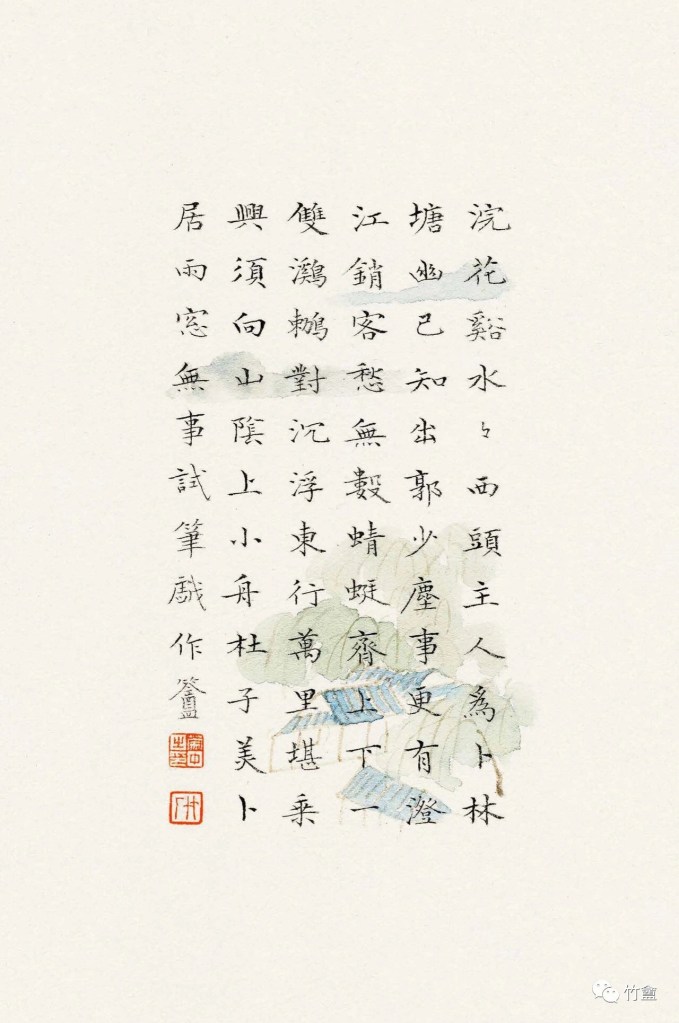 浣花谿水〻西頭主人為卜林
塘幽已知出郭少塵事更有澄
江銷客愁無數蜻蜓齊上下一
雙鸂鶒對沉浮東行萬里堪乘
興須向山陰上小舟杜子美卜
居雨窓無事試筆戲作
竹盦